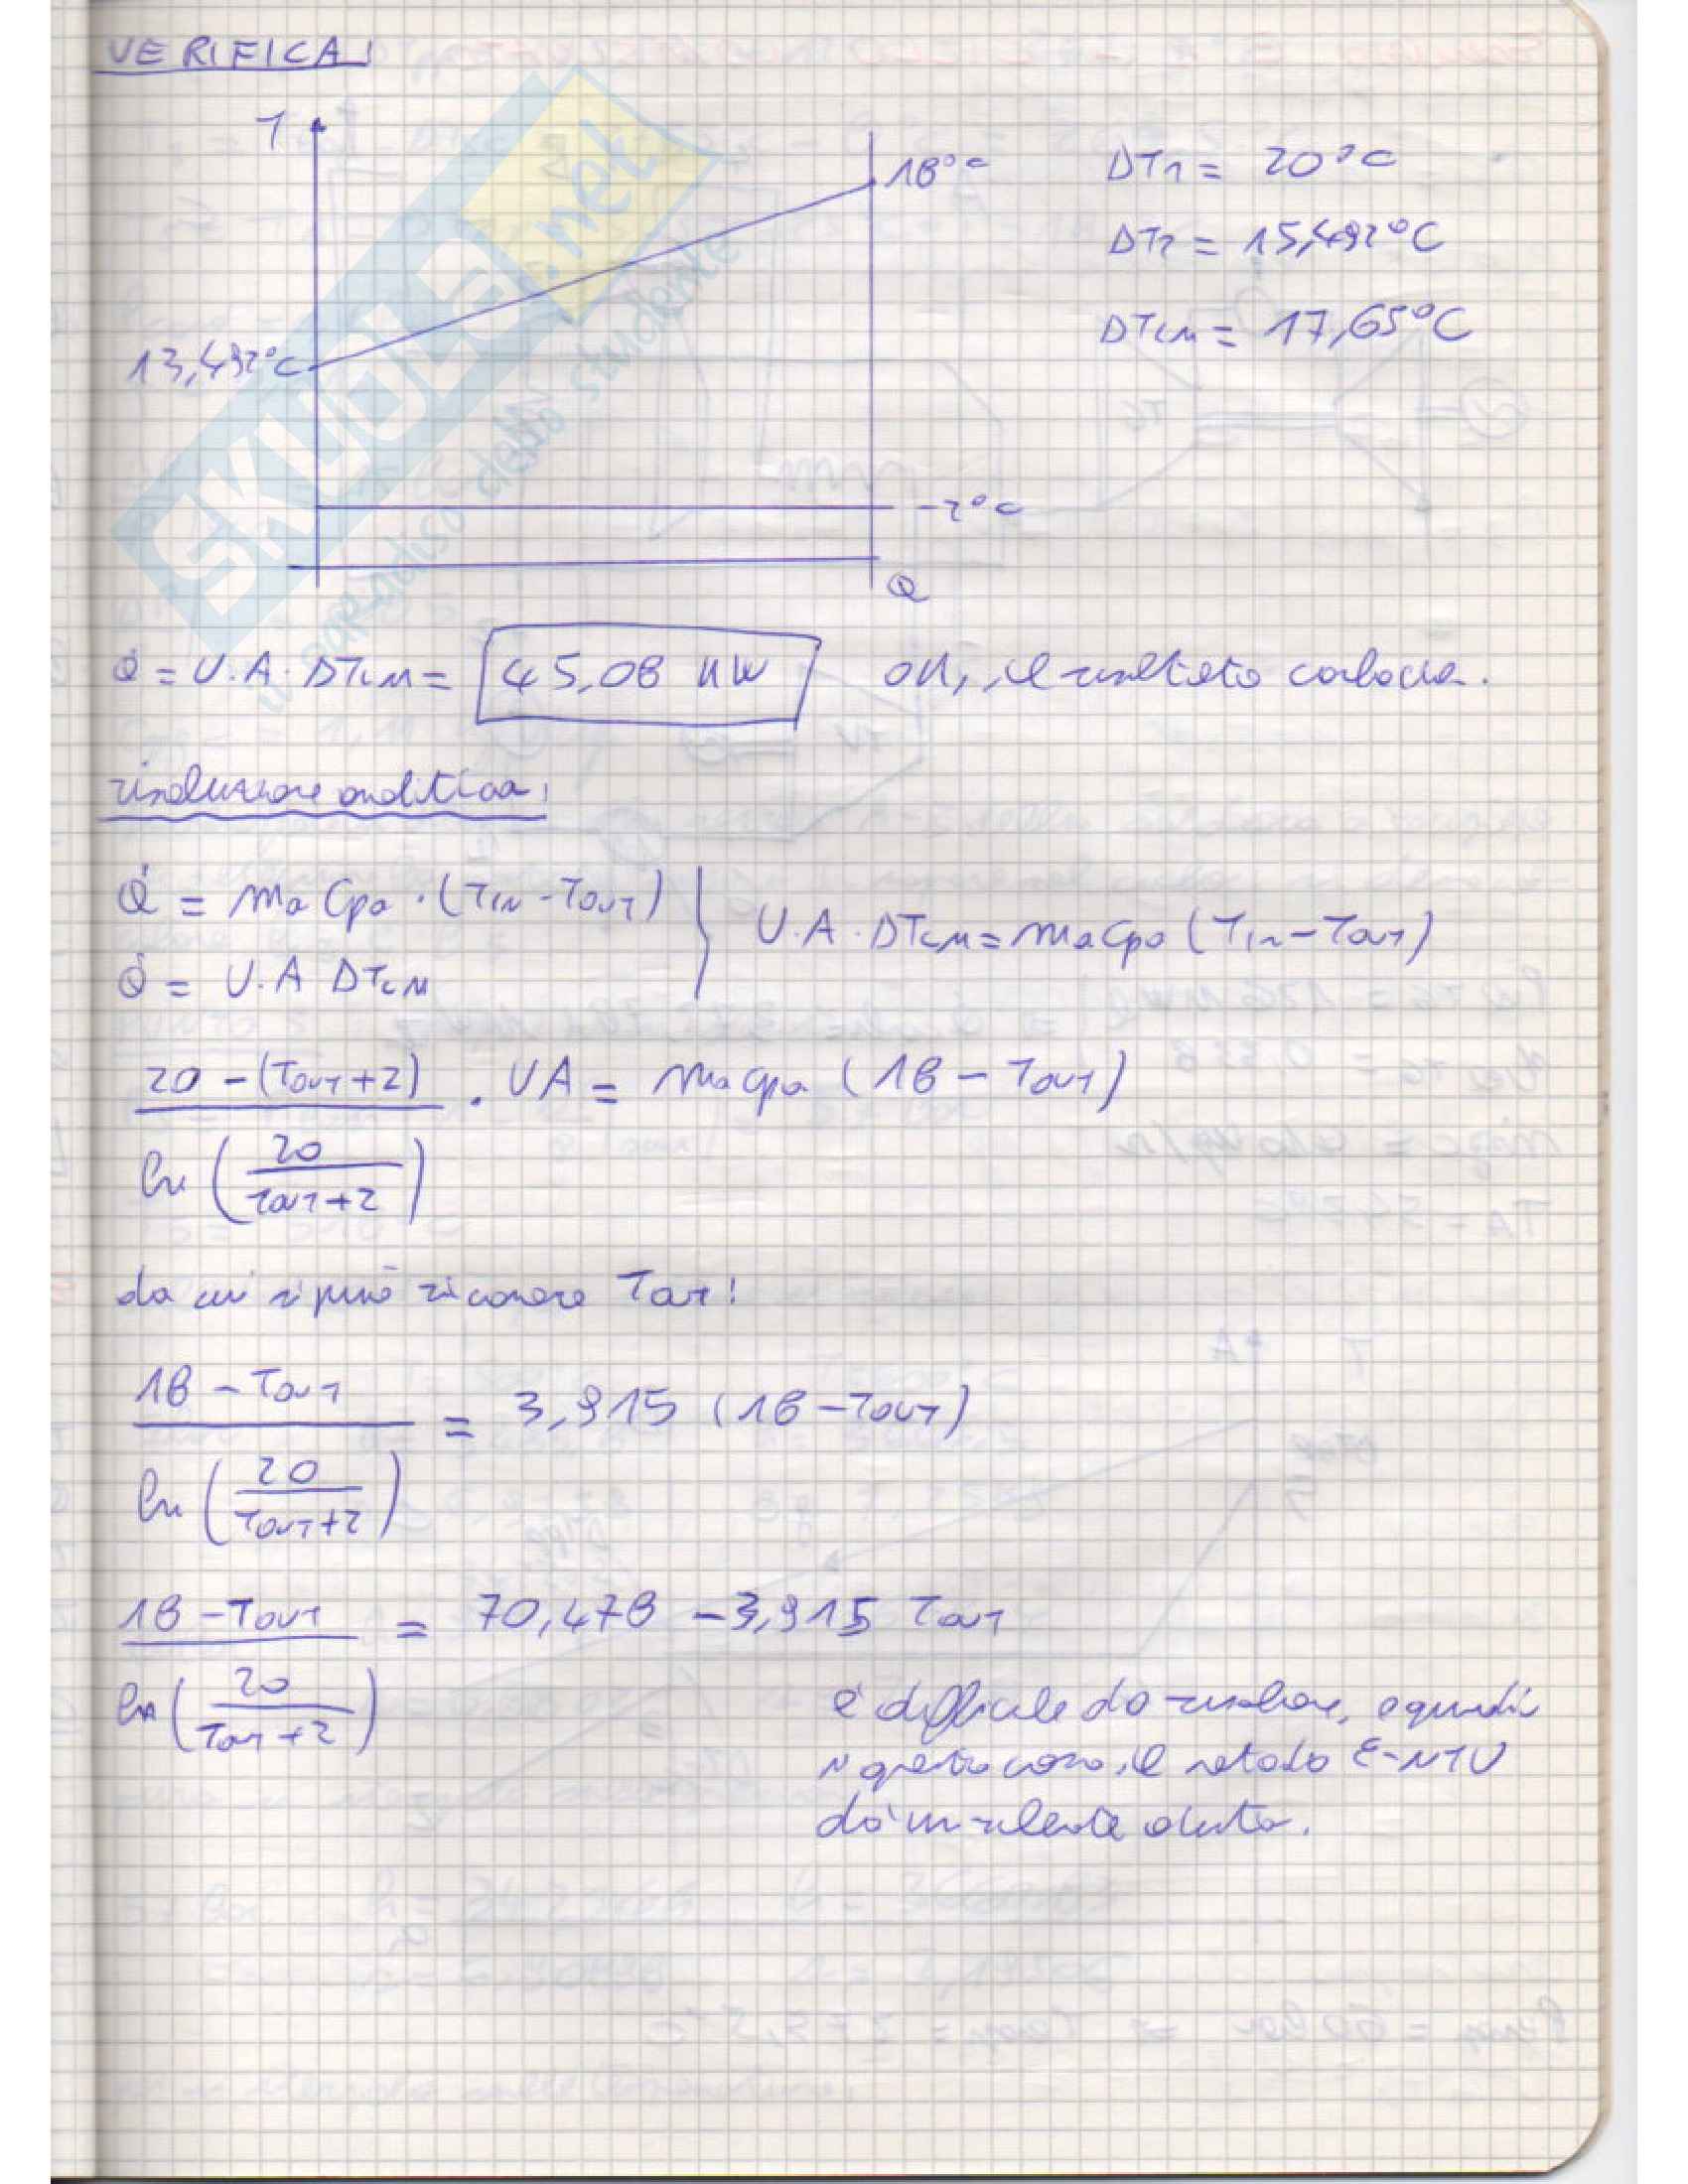 VERIFICA:
T
18°C
DT1 = 20°C
DT2 = 15,492°C
13,492°C
DTLM = 17,65°C
-2°C
Q
Q̇ = U.A. DTLM = 45,08 kW ok, il risultato combacia.
risoluzione analitica:
Q̇ = ma cpa · (TIN - TOUT)
Q̇ = U.A DTLM
U.A. DTLM = ma cpa (TIN - TOUT)
20 - (TOUT + 2) / ln (20 / TOUT + 2) · UA = ma cpa (18 - TOUT)
da cui si può ricavare TOUT:
18 - TOUT / ln (20 / TOUT + 2) = 3,915 (18 - TOUT)
18 - TOUT / ln (20 / TOUT + 2) = 70,478 - 3,915 TOUT
è difficile da risolvere, e quindi
in questo caso, il metodo ε-NTU
dà un valente aiuto.
SKUOLA.net
il paradiso dello studente